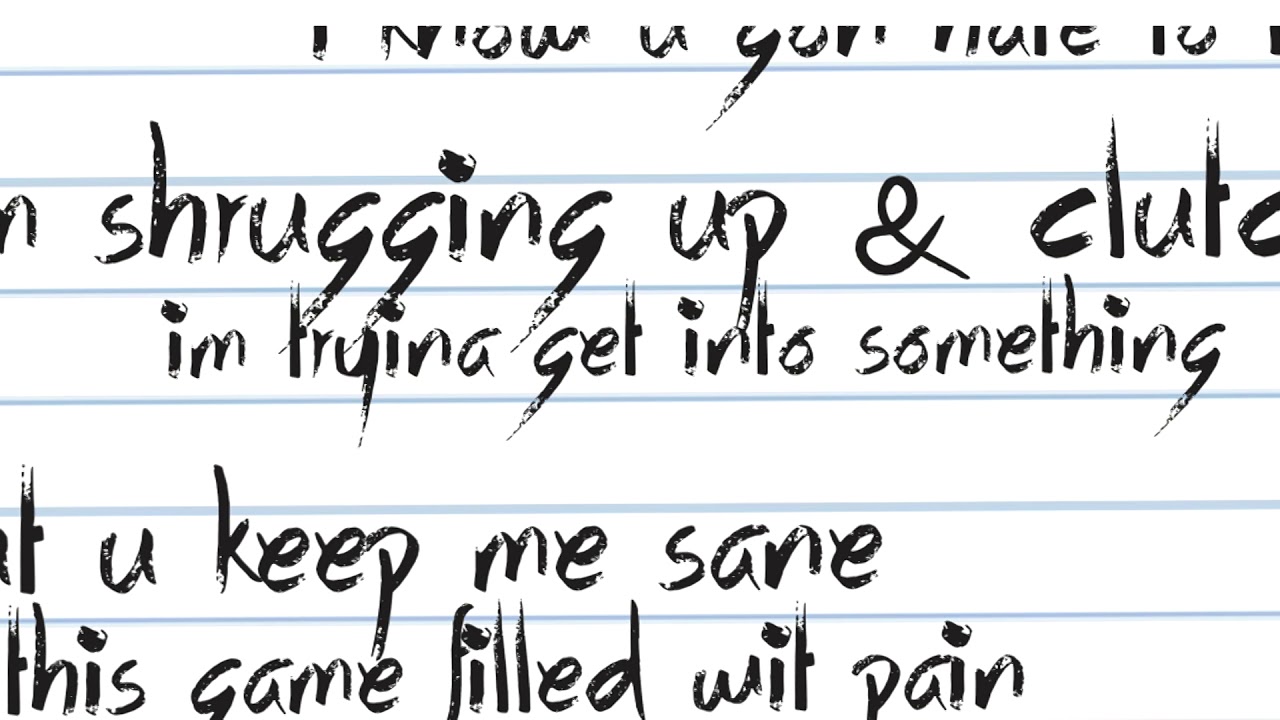 I know u gon hate to
shrugging up &
im tryina get into something
u keep me sane
this game filled wit pain